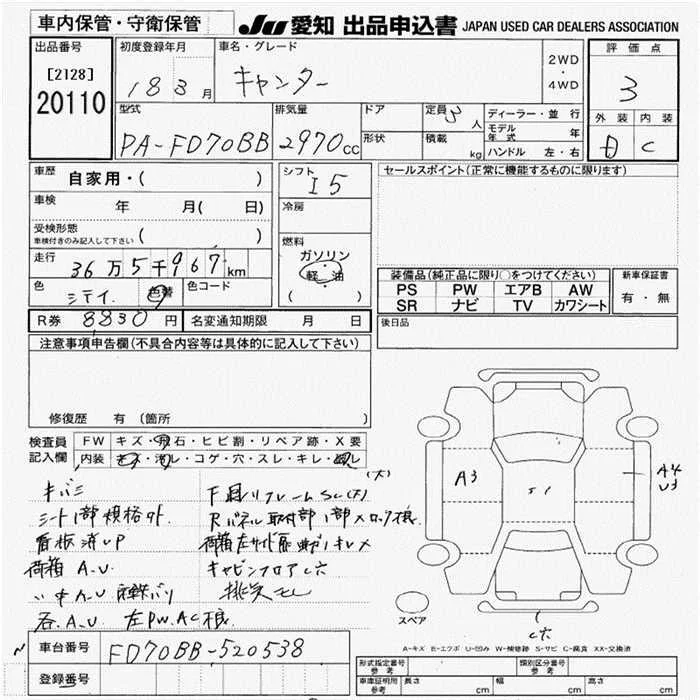 車内保管・守衛保管
JU 愛知 出品申込書 JAPAN USED CAR DEALERS ASSOCIATION
出品番号
[2128]
20110
初度登録年月
18 3月
車名・グレード
キャンター
2WD
・
4WD
評価点
3
外装 内装
D C
型式
PA-FD70BB
排気量
2970cc
ドア
形状
定員 3人
積載 kg
ディーラー・並行
モデル年式 年
ハンドル 左・右
車歴
自家用・( )
車検 年 月( 日)
受検形態
車検付きのみ記入して下さい ( )
走行
36万5千967km
色
シテイ.
色替
色コード
シフト
I5
冷房
燃料
ガソリン
・
軽・油
( )
セールスポイント(正常に機能するものに限ります)
装備品(純正品に限り○をつけてください)
PS PW エアB AW
SR ナビ TV カワシート
新車保証書
有・無
R券 8830円
名変通知期限 月 日
後日品
注意事項申告欄(不具合内容等は具体的に記入して下さい)
修復歴 有(箇所 )
検査員
記入欄
FW キズ・飛石・ヒビ割・リペア跡・X要
内装 キズ・汚レ・コゲ・穴・スレ・キレ・
(大)
キバミ
シート1部規格外.
看板済UP
荷箱 A.U
〃 中A.U
各A.U 左PW.AC様
下廻リフレームSC(大)
Rパネル取付部1部メロック様
キャビンフロアC穴
A3
A4
U3
C穴
スペア
A-キズ E-エクボ U-凹み W-補修跡 S-サビ C-腐食 XX-交換済
車台番号
FD70BB-520538
登録番号
形式指定番号
参考
類別区分番号
参考
車庫証明用
参考
長さ cm
幅 cm
高さ cm